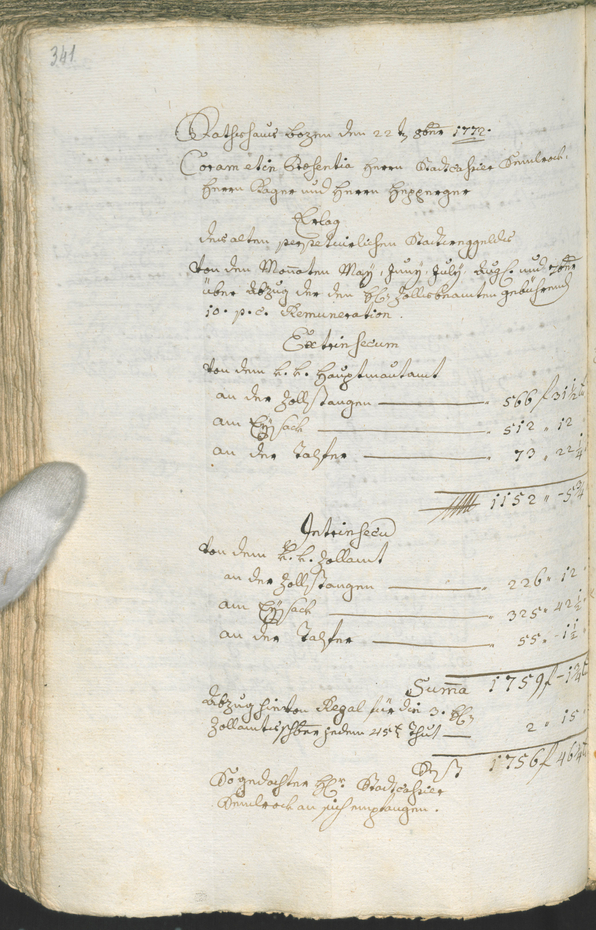 341
Rathshaus bozen den 22 tn 8ber 1772.
Coram et in Presentia Herrn Stadtcassier
Herrn Kager und Herrn Hepperger
Erlag
des alten perpetuirlichen Stattweggeldts
von den Monnaten May, Juny, July, Aug. und 7ber
über Abzug der den HH. Zollsbeamten gebührend
10. p. c. Remuneration.
Extrinsecum
von dem k. k. Hauptmautamt
an der Zollstangen 566 f 31
am Eysack 512 " 12
an der Talfer 73 " 22
1152 "
Intrinsecum
von dem k. k. Zollamt
an der Zollstangen 226 " 12
am Eysack 325 " 42 1/2
an der Talfer 55 "
Summa 1759 f
Abzug hievon Regal für die 3. HH.
Zollamtsschber jedem 45 x thut 2 " 15
Rest 1756 f 46
Sogedachter Hr. Stadtcassier
an sich empfangen.